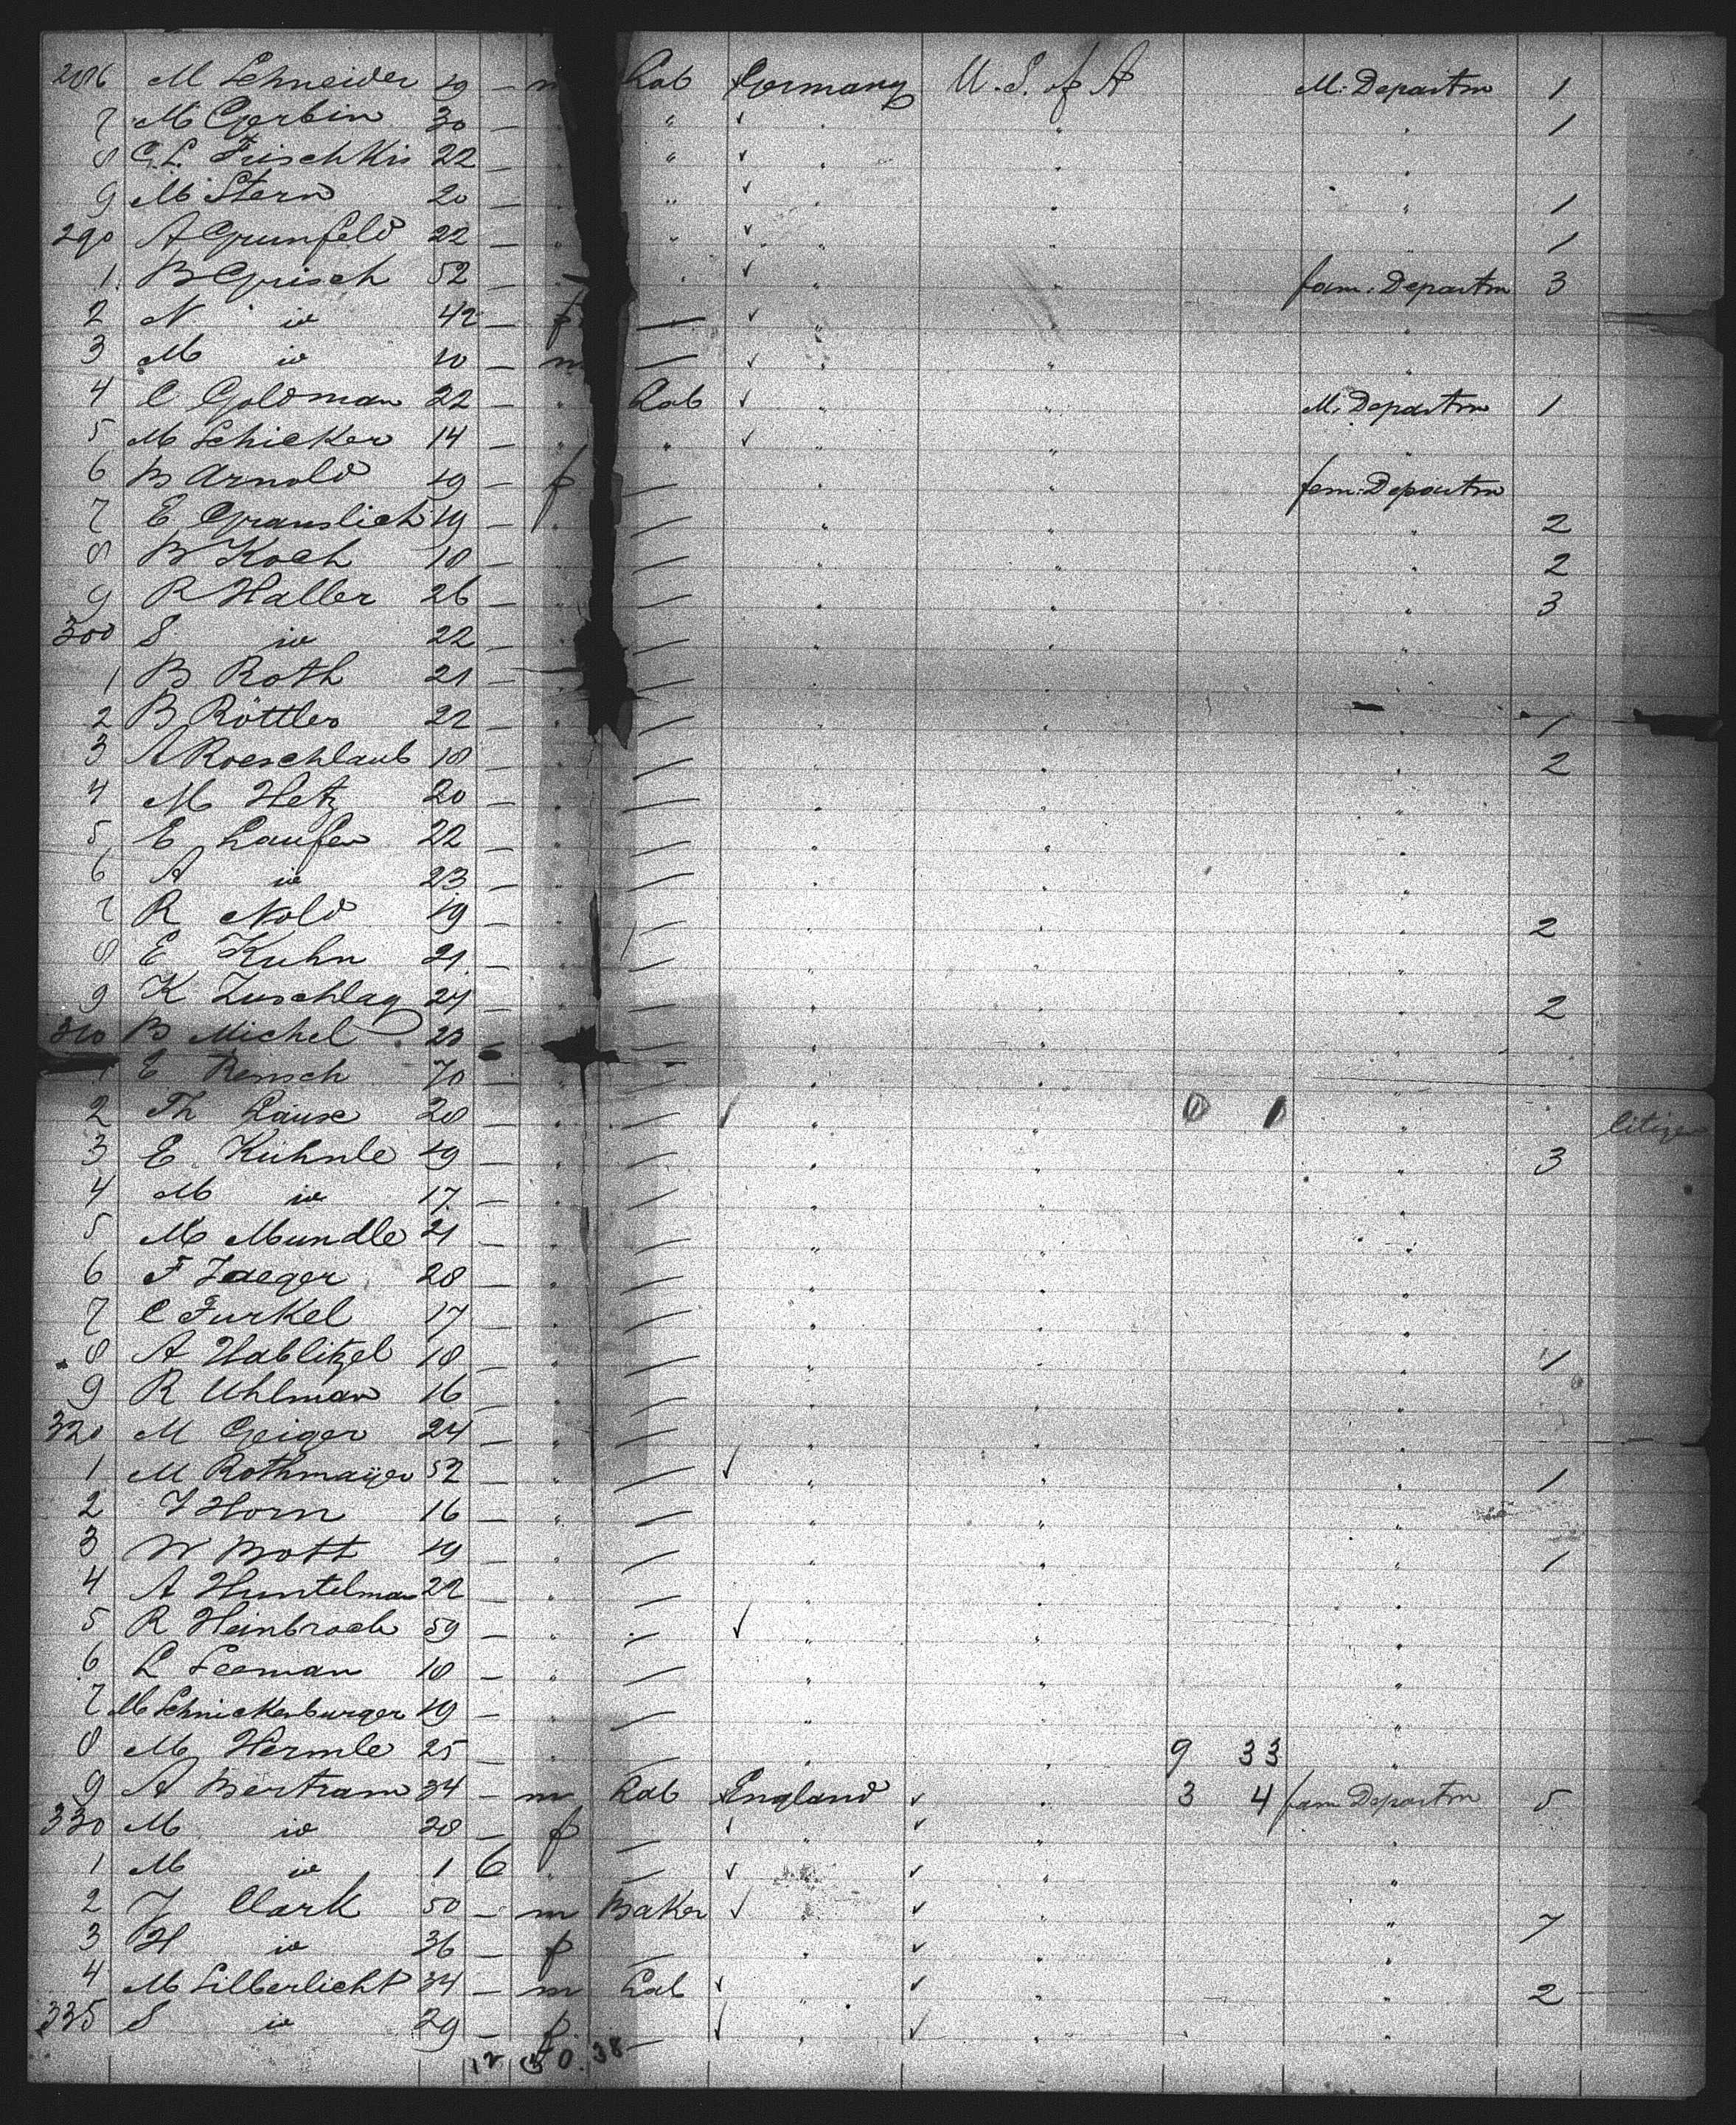 286 M Schneider 19 — m Lab Germany U. S. of A M. Departm 1
7 M Gerbin 30 — " " ✓ " " " 1
8 C. L. Frischkis 22 — " " ✓ " " "
9 M Stern 20 — " " ✓ " " " 1
290 A Grunfeld 22 — " " ✓ " " " 1
1 B Grisch 52 — " " ✓ " " fam. Departm 3
2 N io 42 — f — ✓ " " "
3 M io 10 — m — ✓ " " "
4 C Goldman 22 — " Lab ✓ " " M. Departm 1
5 M Schicker 14 — " " ✓ " " "
6 B Arnold 19 — f — " " fem. Departm
7 E Grauslich 19 — " — " " " 2
8 B Koch 18 — " — " " " 2
9 R Haller 26 — " — " " " 3
300 S io 22 — " — " " "
1 B Roth 21 — " — " " "
2 B Röttler 22 — " — " " " 1
3 A Roeschlaub 18 — " — " " " 2
4 M Hetz 20 — " — " " "
5 E Laufer 22 — " — " " "
6 A io 23 — " — " " "
7 R Nold 19 — " — " " " 2
8 E Kuhn 21 — " — " " "
9 K Zuschlag 24 — " — " " " 2
310 B Michel 23 — " — " " "
1 E Rensch 70 — " — " " "
2 Th Lause 28 — " — " " 0 1 " Citizen
3 E Kühnle 19 — " — " " " 3
4 M io 17 — " — " " "
5 M Mundle 21 — " — " " "
6 F Jaeger 28 — " — " " "
7 C Furkel 17 — " — " " "
8 A Hablitzel 18 — " — " " " 1
9 R Uhlman 16 — " — " " "
320 M Geiger 24 — " — " " "
1 M Rothmaijer 52 — " — ✓ " " " 1
2 J Horn 16 — " — " " "
3 W Bott 19 — " — " " " 1
4 A Huntelman 22 — " — " " "
5 R Heinbroch 59 — " — ✓ " " "
6 L Seeman 18 — " — " " "
7 M Schnickenburger 19 — " — " " "
8 M Hermle 25 — " — " " 9 33 "
9 A Bertram 34 — m Lab England ✓ " 3 4 fam Departm 5
330 M io 28 — f — ✓ ✓ " "
1 M io 1 6 " — ✓ ✓ " "
2 J Clark 50 — m Baker ✓ " ✓ " " 7
3 H io 36 — f — " ✓ " "
4 M Silberlicht 34 — m Lab ✓ " ✓ " " 2
335 S io 29 — f — ✓ " ✓ " "
12 38